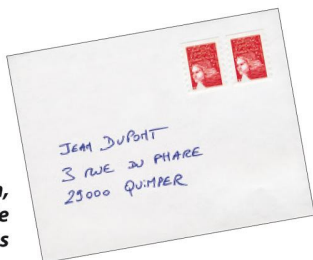 JEAN DUPONT
3 RUE DU PHARE
29000 QUIMPER
n,
e
s